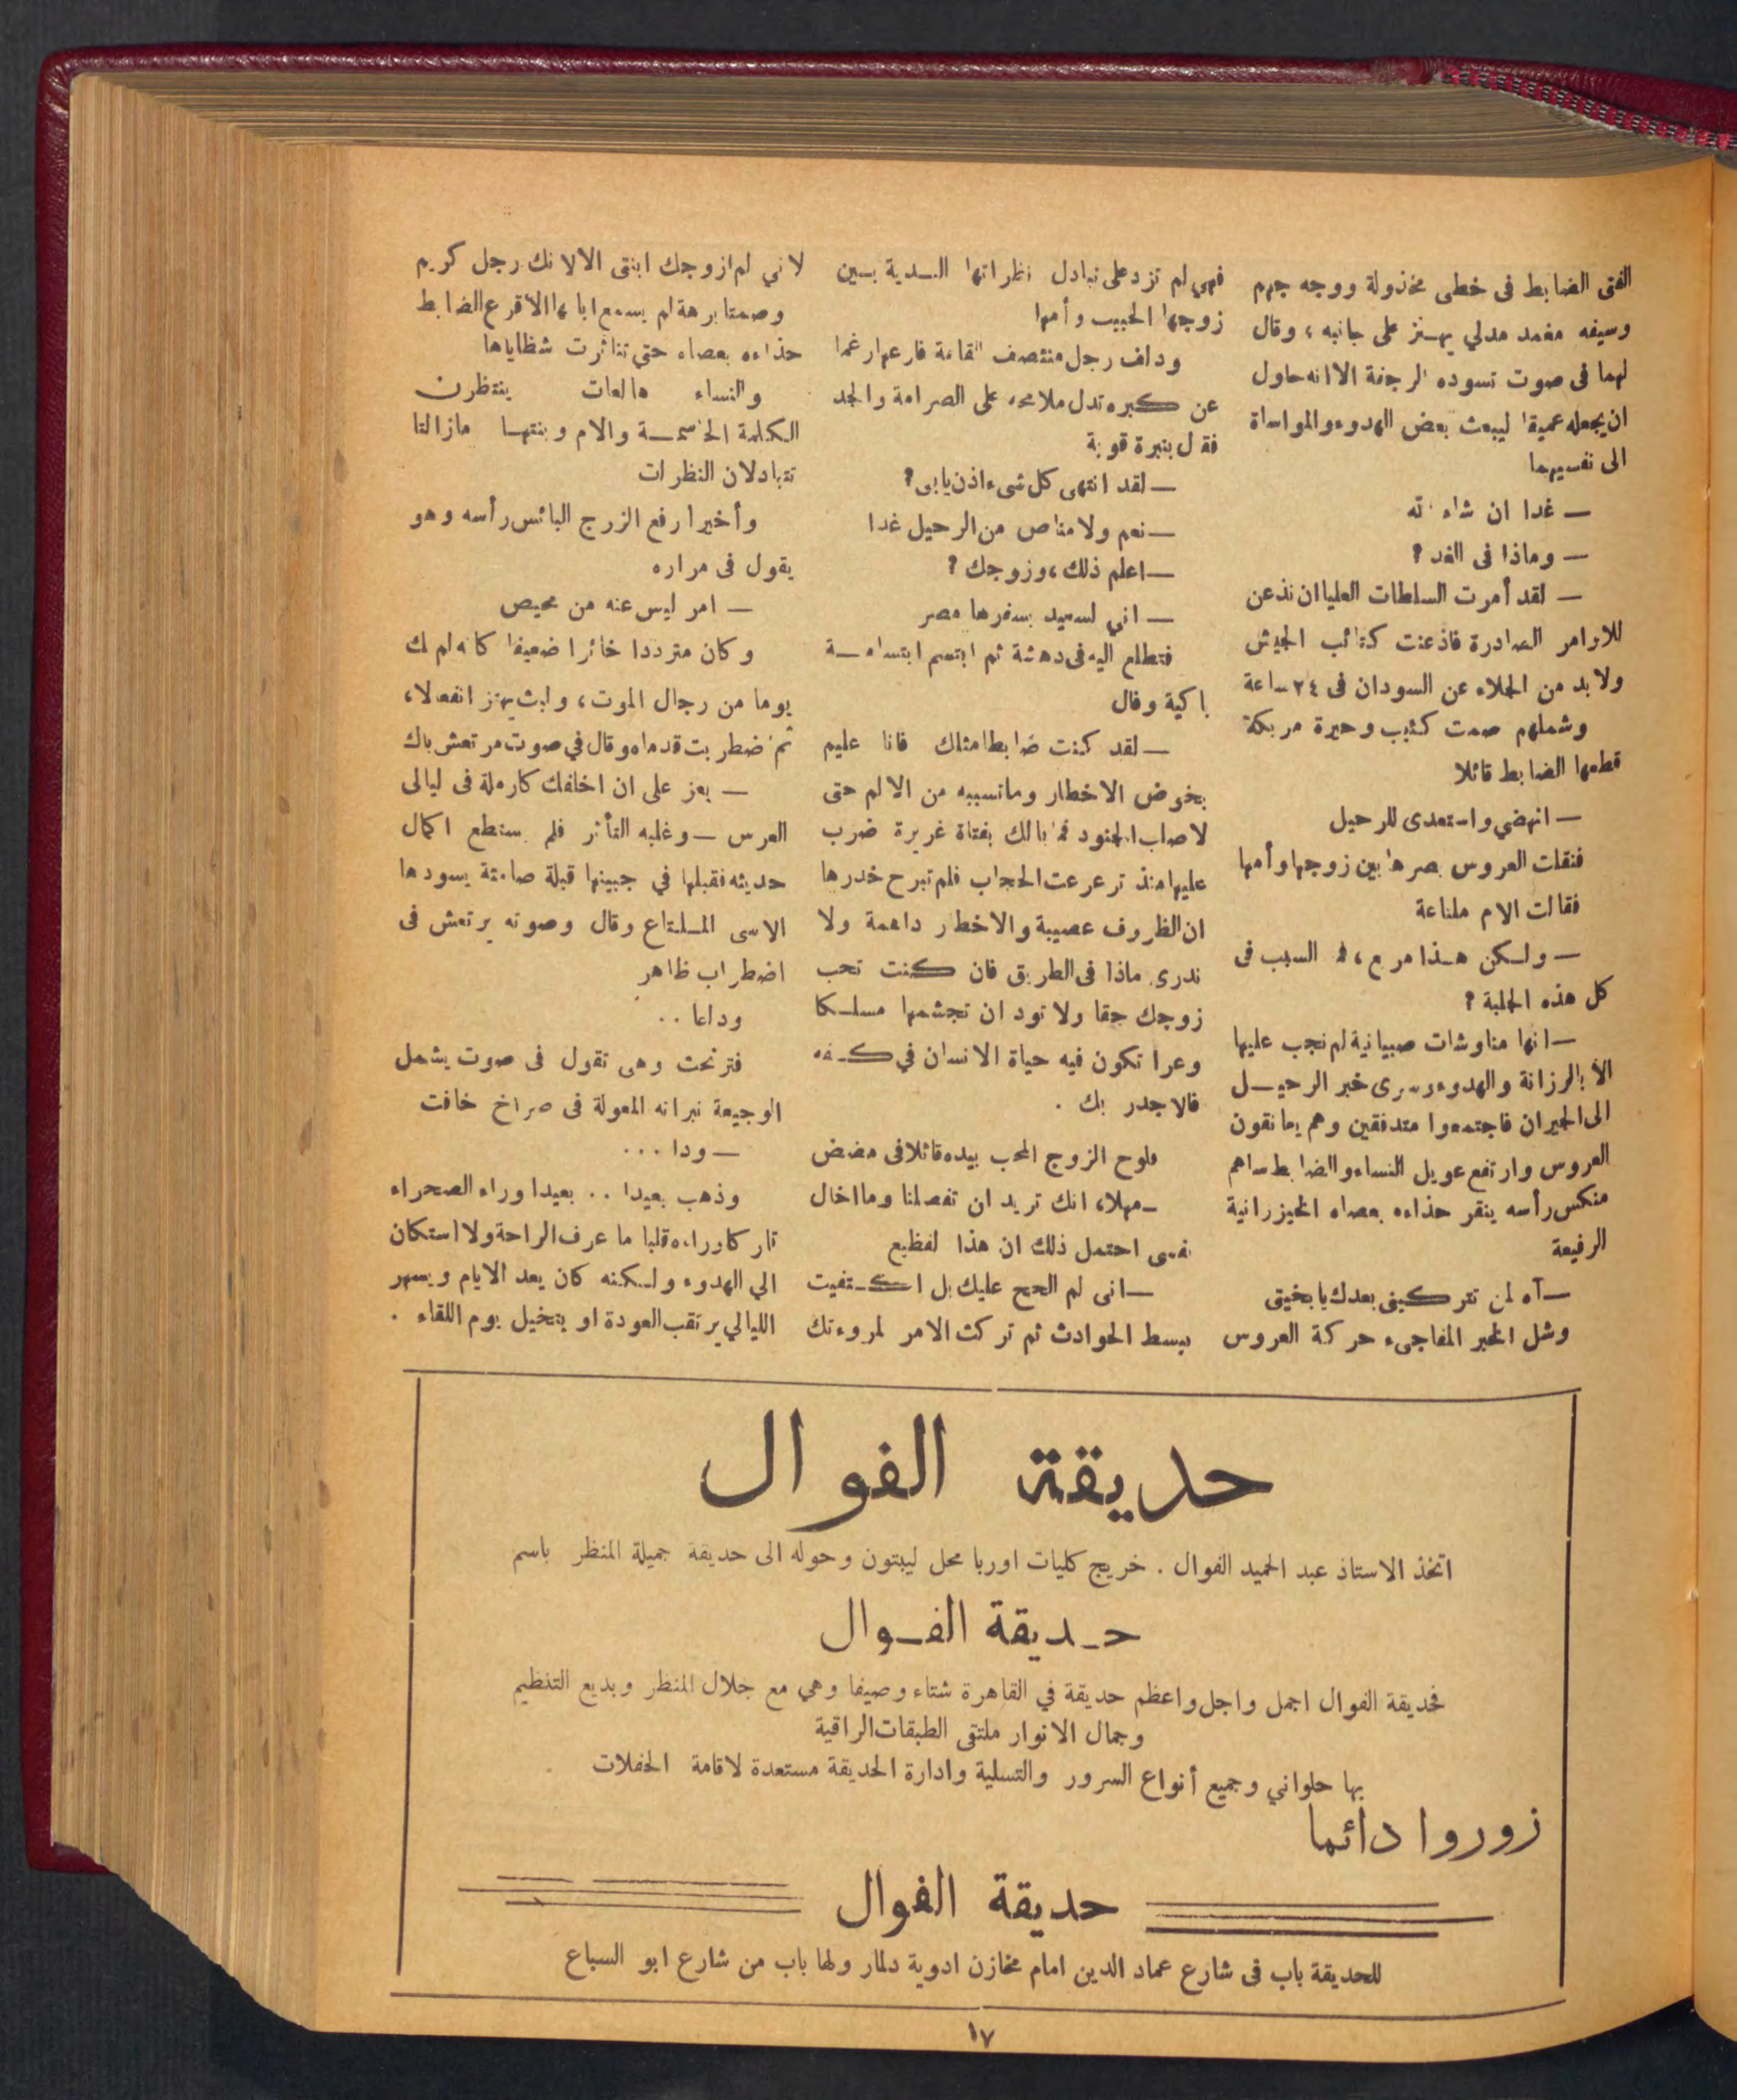 الفتى الضابط فى خطى مخذولة ووجه جهم
وسيفه مغمد مدلي يهتز على جانبه ، وقال
لهما فى صوت تسوده الرجفة الا انه حاول
ان يجعله عميقا ليبعث بعض الهدوء والمواساة
الى نفسيهما
— غدا ان شاء الله
— وماذا فى الغد ؟
— لقد أمرت السلطات العليا ان نذعن
للاوامر الصادرة فاذعنت كتائب الجيش
ولا بد من الجلاء عن السودان فى ٢٤ ساعة
وشملهم صمت كئيب وحيرة مربكة
قطعها الضابط قائلا
— انهضي واستعدى للرحيل
فنقلت العروس بصرها بين زوجها وأمها
فقالت الام ملتاعة
— ولكن هذا مريع ، فما السبب فى
كل هذه الجلبة ؟
— انها مناوشات صبيانية لم نجب عليها
الا بالرزانة والهدوء وسرى خبر الرحيـل
الى الجيران فاجتمعوا متدفقين وهم يعانقون
العروس وارتفع عويل النساء والضابط ساهم
منكس رأسه ينقر حذاءه بعصاه الخيزرانية
الرفيعة
— آه لمن تتركينى بعدك يا بخيتى
وشل الخبر المفاجىء حركة العروس
فهي لم تزد على تبادل نظراتها الندية بـين
زوجها الحبيب وأمها
ودلف رجل منتصف القامة فارعها رغما
عن كبره تدل ملامحه على الصرامة والجد
فقال بنبرة قوية
— لقد انتهى كل شىء اذن يا بى ؟
— نعم ولا مناص من الرحيل غدا
— اعلم ذلك ، وزوجك ؟
— اني لسعيد بسفرها مصر
فتطلع اليه فى دهشة ثم ابتسم ابتسامـة
باكية وقال
— لقد كنت ضابطا مثلك فانا عليم
بخوض الاخطار وماتسببه من الالم حتى
لاصلب الجنود فما بالك بفتاة غريرة ضرب
عليها منذ ترعرعت الحجاب فلم تبرح خدرها
ان الظروف عصيبة والاخطار داهمة ولا
ندرى ماذا فى الطريق فان كنت تحب
زوجك حقا ولا تود ان تجشمها مسلكا
وعرا تكون فيه حياة الانسان في كـفه
فالاجدر بك .
فلوح الزوج المحب بيده قائلا فى مضض
— مهلا ، انك تريد ان تفصلنا وما اخال
نفسى احتمل ذلك ان هذا لفظيع
— انى لم الحح عليك بل اكـتفيت
ببسط الحوادث ثم تركت الامر لمروءتك
لاني لم ازوجك ابنتى الا لانك رجل كريم
وصمتا برهة لم يسمع ابانها الا قرع الضابط
حذاءه بعصاه حتي تناثرت شظاياها
والنساء هالعات ينتظرن
الكلمة الحاسمـة والام وبنتهـا مازالتا
تتبادلان النظرات
وأخيرا رفع الزوج البائس رأسه وهو
يقول فى مراره
— امر ليس عنه من محيص
وكان مترددا خائرا ضعيفا كانه لم يك
يوما من رجال الموت ، ولبث يهتز انفعالا ،
ثم اضطربت قدماه وقال في صوت مرتعش باك
— يعز على ان اخلفك كارملة فى ليالى
العرس — وغلبه التأثر فلم يستطع اكمال
حديثه فقبلها في جبينها قبلة صامتة يسودها
الاسى الملتاع وقال وصوته يرتعش فى
اضطراب ظاهر
وداعا ..
فترنحت وهى تقول فى صوت يشمل
الوجيعة نبراته المعولة فى صراخ خافت
— ودا ...
وذهب بعيدا .. بعيدا وراء الصحراء
تاركا وراءه قلبا ما عرف الراحة ولا استكان
الي الهدوء ولكنه كان يعد الايام ويسهر
الليالي يرتقب العودة او يتخيل يوم اللقاء .
حديقة الفوال
اتخذ الاستاذ عبد الحميد الفوال . خريج كليات اوربا محل ليبتون وحوله الى حديقة جميلة المنظر باسم
حـديقة الفـوال
فحديقة الفوال اجمل واجل واعظم حديقة في القاهرة شتاء وصيفا وهي مع جلال المنظر وبديع التنظيم
وجمال الانوار ملتقى الطبقات الراقية
بها حلواني وجميع أنواع السرور والتسلية وادارة الحديقة مستعدة لاقامة الحفلات
زوروا دائما
حديقة الفوال
للحديقة باب فى شارع عماد الدين امام مخازن ادوية دلمار ولها باب من شارع ابو السباع
١٧